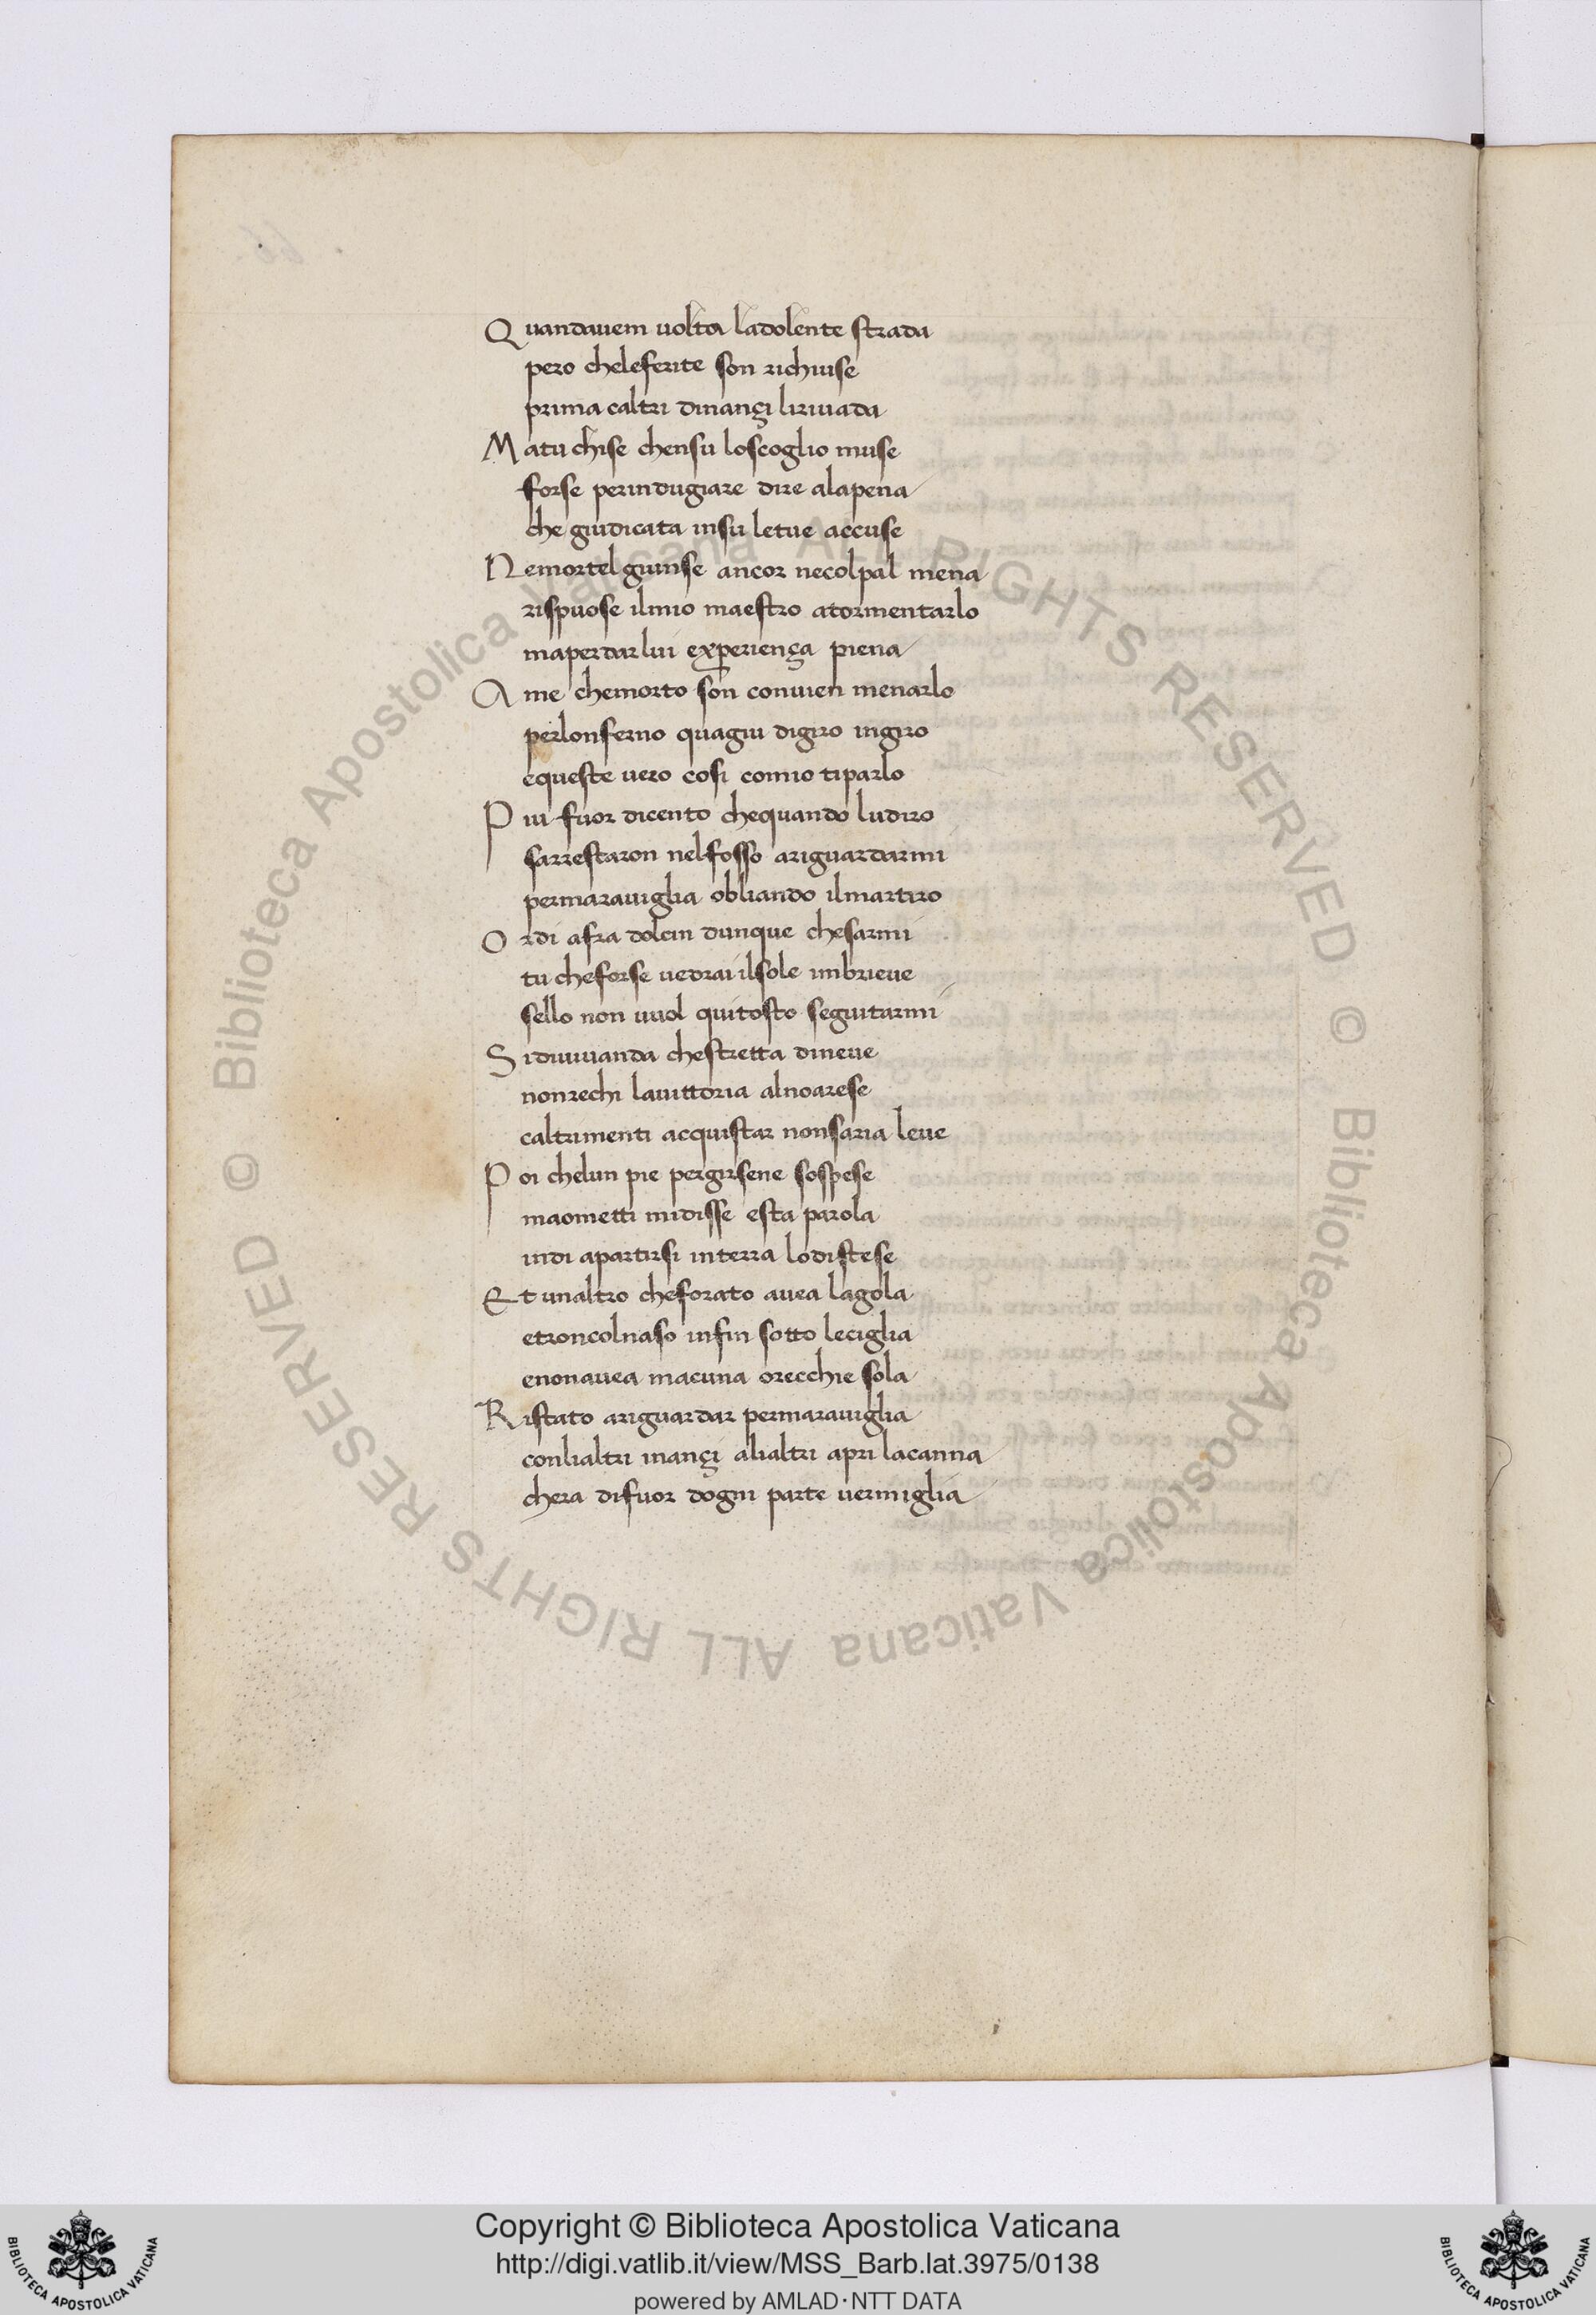 Quandauem uolta ladolente strada
pero cheleferite son richiuse
prima caltri dinançi liriuada
Matu chise chensu loscoglio muse
forse perindugiare dire alapena
che giudicata insu letue accuse
Nemortel giunse ancor necolpal mena
rispuose ilmio maestro atormentarlo
maperdarlui experiença piena
A me chemorto son conuien menarlo
perlonferno quagiu digiro ingiro
equeste uero cosi comio tiparlo
Piu fuor dicento chequando ludiro
sarrestaron nelfosso ariguardarmi
permarauiglia obliando ilmartiro
Ordi afra dolcin dunque chesarmi
tu cheforse uedrai ilsole imbrieue
sello non uuol quitosto seguitarmi
Sidiuiuanda chestretta dineue
nonrechi lauittoria alnoarese
caltrimenti acquistar nonsaria leue
Poi chelun pie pergirsene sospese
maometti midisse esta parola
indi apartirsi interra lodistese
Et unaltro cheforato auea lagola
etroncolnaso infin sotto leciglia
enonauea macuna orecchie sola
Ristato ariguardar permarauiglia
conlialtri inançi alialtri apri lacanna
chera difuor dogni parte uermiglia
© Biblioteca Apostolica Vaticana ALL RIGHTS RESERVED
© Biblioteca Apostolica Vaticana ALL RIGHTS RESERVED
Copyright © Biblioteca Apostolica Vaticana
http://digi.vatlib.it/view/MSS_Barb.lat.3975/0138
powered by AMLAD·NTT DATA
BIBLIOTECA APOSTOLICA VATICANA
BIBLIOTECA APOSTOLICA VATICANA